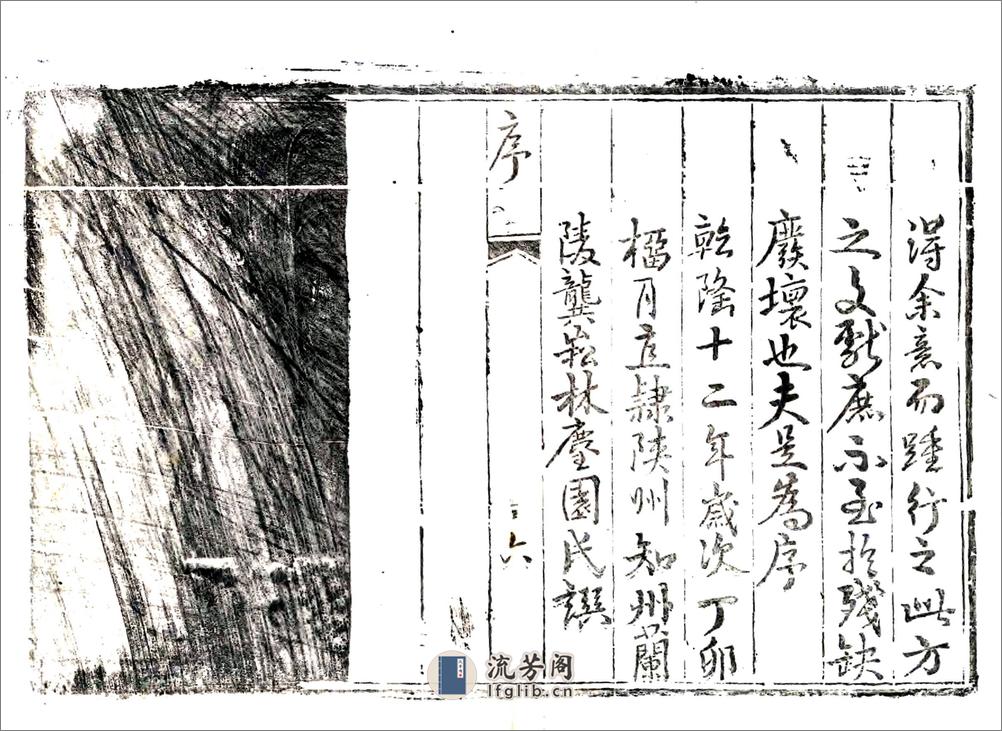 得余意而踵行之此方
之文獻庶不至扵殘缺
廢壞也夫是為序
乾隆十二年歲次丁卯
榴月直隸陝州知州蘭
陵龔崧林麈園氏譔
序
六
流芳阁
lfglib.cn